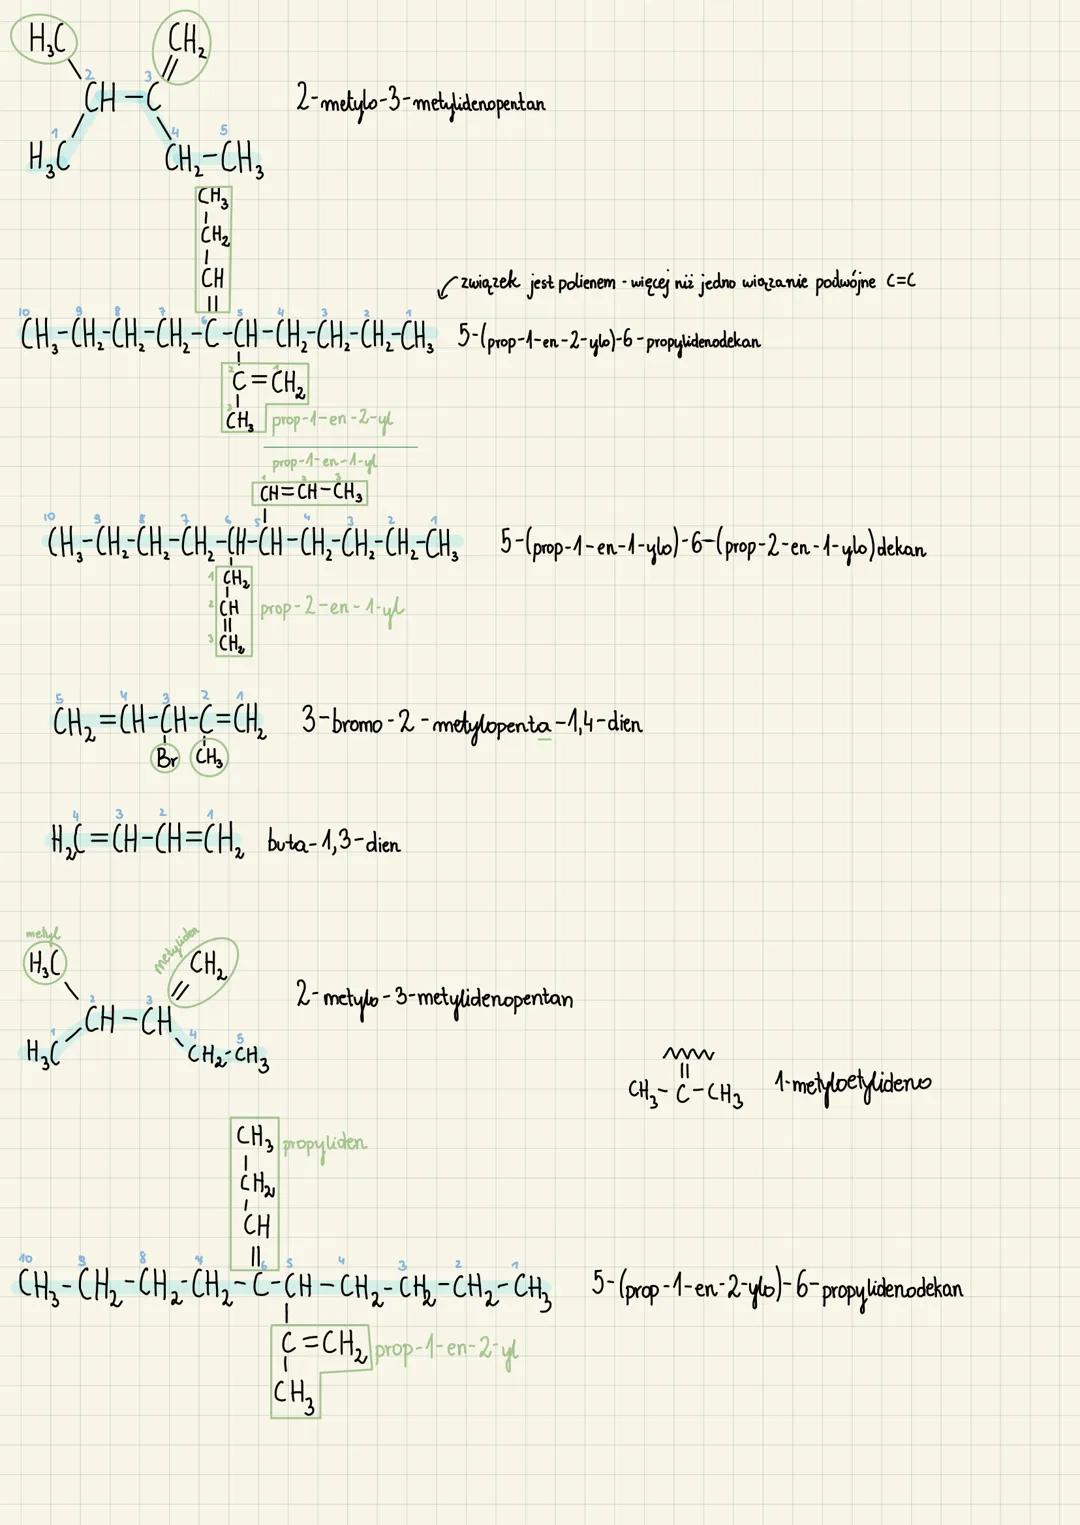 H₃C CH₂
2 3
CH-C 2-metylo-3-metylidenopentan
1 4 5
H₃C CH₂-CH₃
CH₃
CH₂
CH
związek jest polienem - więcej niż jedno wiązanie podwójne C=C
10 9 8 7 6 5 4 3 2 1
CH₃-CH₂-CH₂-CH₂-C-CH-CH₂-CH₂-CH₂-CH₃ 5-(prop-1-en-2-ylo)-6-propylidenodekan
2 1
C=CH₂
3
CH₃ prop-1-en-2-yl
prop-1-en-1-yl
1 2 3
CH=CH-CH₃
10 9 8 7 6 5 4 3 2 1
CH₃-CH₂-CH₂-CH₂-CH-CH-CH₂-CH₂-CH₂-CH₃ 5-(prop-1-en-1-ylo)-6-(prop-2-en-1-ylo)dekan
1 CH₂
2 CH prop-2-en-1-yl
3 CH₂
5 4 3 2 1
CH₂=CH-CH-C=CH₂ 3-bromo-2-metylopenta-1,4-dien
Br CH₃
4 3 2 1
H₂C=CH-CH=CH₂ buta-1,3-dien
metyl metyliden
H₃C CH₂
2 3
CH-CH 2-metylo-3-metylidenopentan
1 4 5
H₃C CH₂-CH₃
CH₃-C-CH₃ 1-metyloetylideno
CH₃ propyliden
CH₂
CH
10 9 8 7 6 5 4 3 2 1
CH₃-CH₂-CH₂-CH₂-C-CH-CH₂-CH₂-CH₂-CH₃ 5-(prop-1-en-2-ylo)-6-propylidenodekan
C=CH₂ prop-1-en-2-yl
CH₃